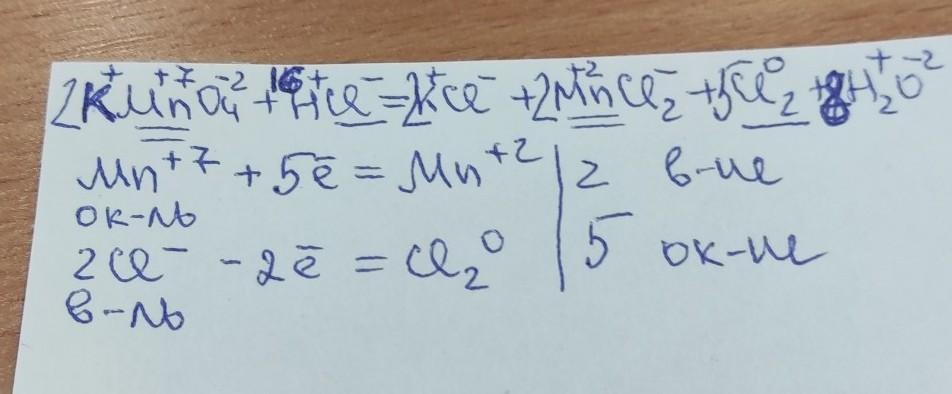 2K⁺Mn⁺⁷O₄⁻² + 16H⁺Cl⁻ = 2K⁺Cl⁻ + 2Mn⁺²Cl₂⁻ + 5Cl₂⁰ + 8H₂⁺O⁻²
Mn⁺⁷ + 5ē = Mn⁺² | 2 в-ие
ок-ль
2Cl⁻ - 2ē = Cl₂⁰ | 5 ок-ие
в-ль